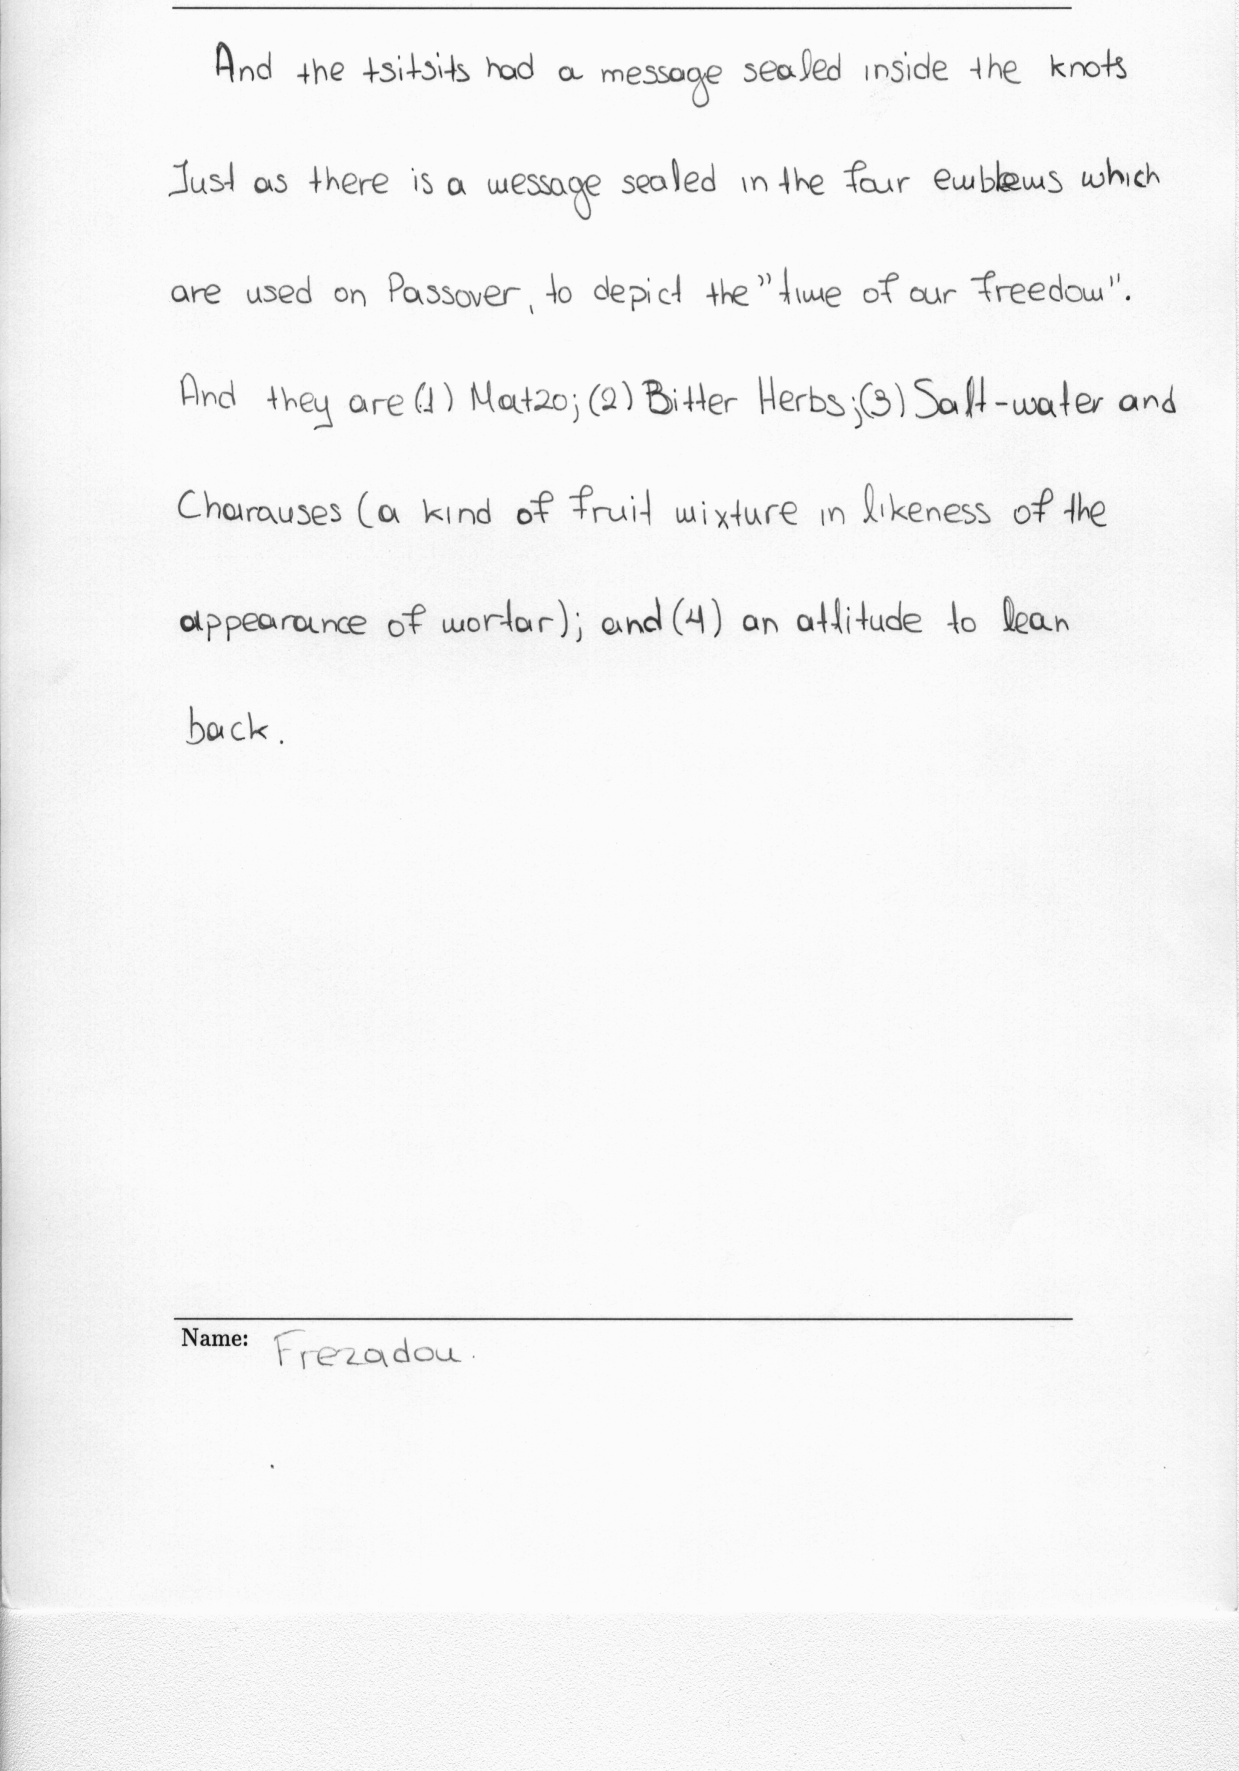 And the tsitsits had a message sealed inside the knots
Just as there is a message sealed in the four emblems which
are used on Passover, to depict the "time of our freedom".
And they are (1) Matzo; (2) Bitter Herbs; (3) Salt-water and
Charauses (a kind of fruit mixture in likeness of the
appearance of mortar); and (4) an attitude to lean
back.
Name: Frezadou.